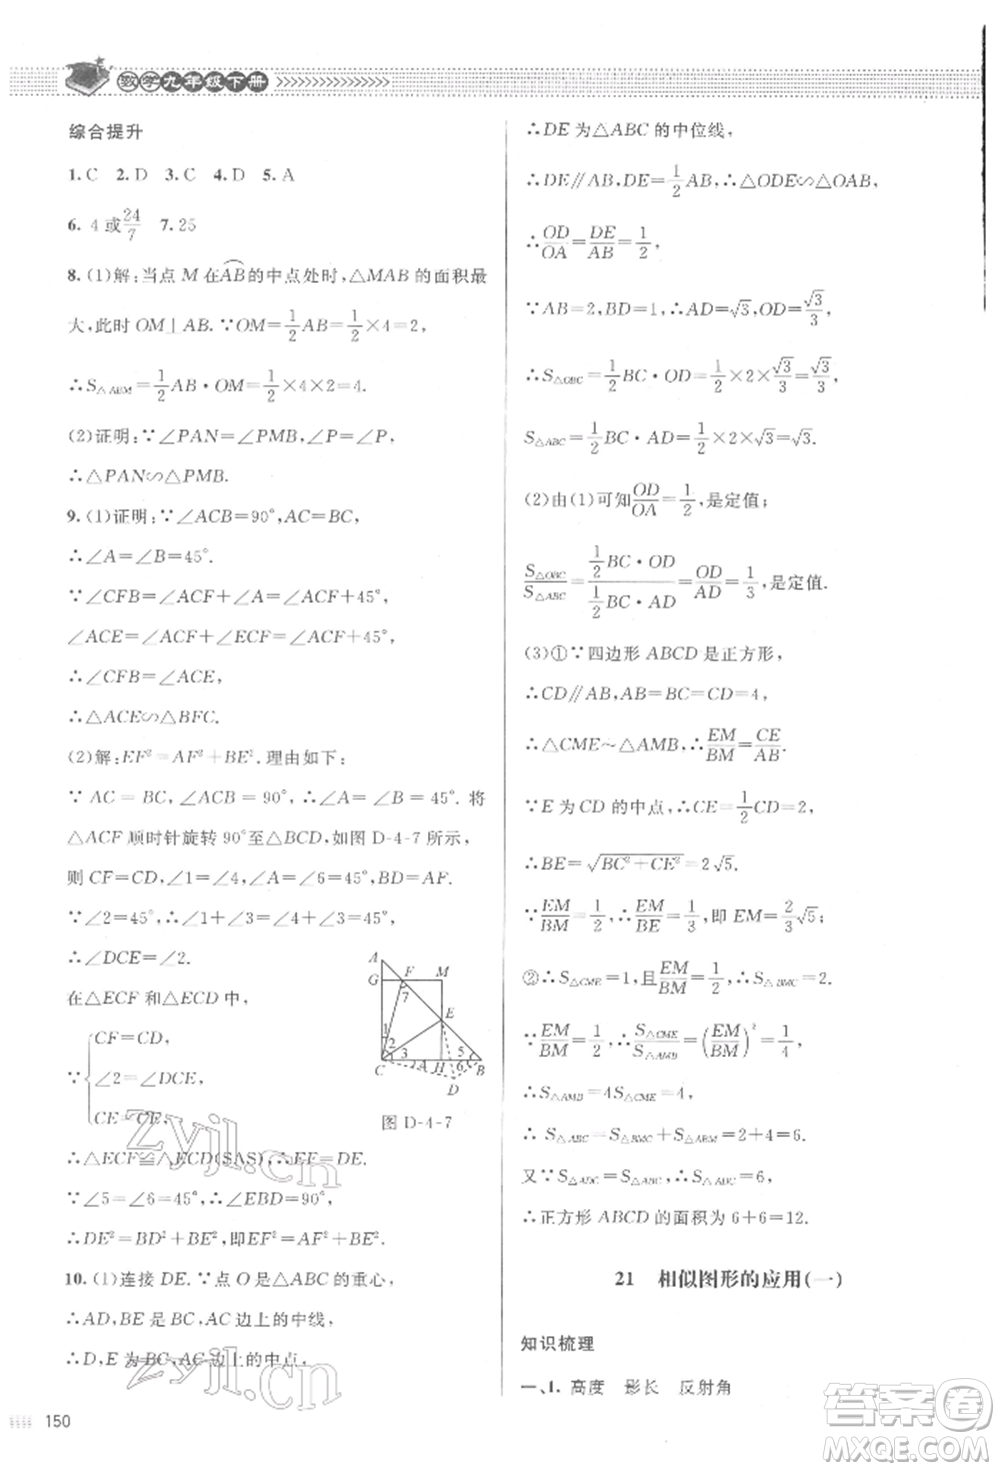 数学九年级下册
综合提升
1. C 2. D 3. C 4. D 5. A
6. 4 或 24/7 7. 25
8. (1)解:当点 M 在AB的中点处时,△MAB 的面积最
大,此时 OM⊥AB. ∵OM=1/2AB=1/2×4=2,
∴S△AEM=1/2AB·OM=1/2×4×2=4.
(2)证明:∵∠PAN=∠PMB,∠P=∠P,
∴△PAN∽△PMB.
9. (1)证明:∵∠ACB=90°,AC=BC,
∴∠A=∠B=45°.
∵∠CFB=∠ACF+∠A=∠ACF+45°,
∠ACE=∠ACF+∠ECF=∠ACF+45°,
∴∠CFB=∠ACE.
∴△ACE∽△BFC.
(2)解:EF²=AF²+BE².理由如下:
∵AC=BC,∠ACB=90°,∴∠A=∠B=45°.将
△ACF 顺时针旋转 90°至△BCD,如图 D-4-7 所示,
则 CF=CD,∠1=∠4,∠A=∠6=45°,BD=AF.
∵∠2=45°,∴∠1+∠3=∠4+∠3=45°.
∴∠DCE=∠2.
在△ECF 和△ECD 中,
∵{CF=CD,
∠2=∠DCE,
CE=CE,
A G F M 7 E 1 2 3 4 5 6 C A H B D
图 D-4-7
∴△ECF≌△ECD(SAS).∴EF=DE.
∵∠5=45°,∠6=45°,∴∠EBD=90°,
∴DE²=BD²+BE²,即EF²=AF²+BE².
10. (1)连接 DE. ∵点 O 是△ABC 的重心,
∴AD,BE 是 BC,AC 边上的中线,
∴D,E 为 BC,AC 边上的中点,
150
∴DE 为△ABC 的中位线,
∴DE∥AB,DE=1/2AB,∴△ODE∽△OAB,
∴OD/OA=DE/AB=1/2,
∵AB=2,BD=1,∴AD=√3,OD=√3/3,
∴S△OBC=1/2BC·OD=1/2×2×√3/3=√3/3,
S△ABC=1/2BC·AD=1/2×2×√3=√3.
(2)由(1)可知OD/OA=1/2,是定值;
S△OBC/S△ABC=(1/2BC·OD)/(1/2BC·AD)=OD/AD=1/3,是定值.
(3)①∵四边形 ABCD 是正方形,
∴CD∥AB,AB=BC=CD=4,
∴△CME∽△AMB,∴EM/BM=CE/AB.
∵E 为 CD 的中点,∴CE=1/2CD=2,
∴BE=√(BC²+CE²)=2√5.
∵EM/BM=1/2,∴EM/BE=1/3,即 EM=2/3√5;
②∴S△CME=1,且EM/BM=1/2,∴S△BMC=2.
∵EM/BM=1/2,∴S△CME/S△AMB=(EM/BM)²=1/4,
∴S△AMB=4S△CME=4,
∴S△ABC=S△BMC+S△ABM=2+4=6.
又∵S△ADC=S△ABC,
∴正方形 ABCD 的面积为 6+6=12.
21 相似图形的应用(一)
知识梳理
一、1. 高度 影长 反射角
Zyjl.cn
zyjl.cn
答案卷
MXQE.COM